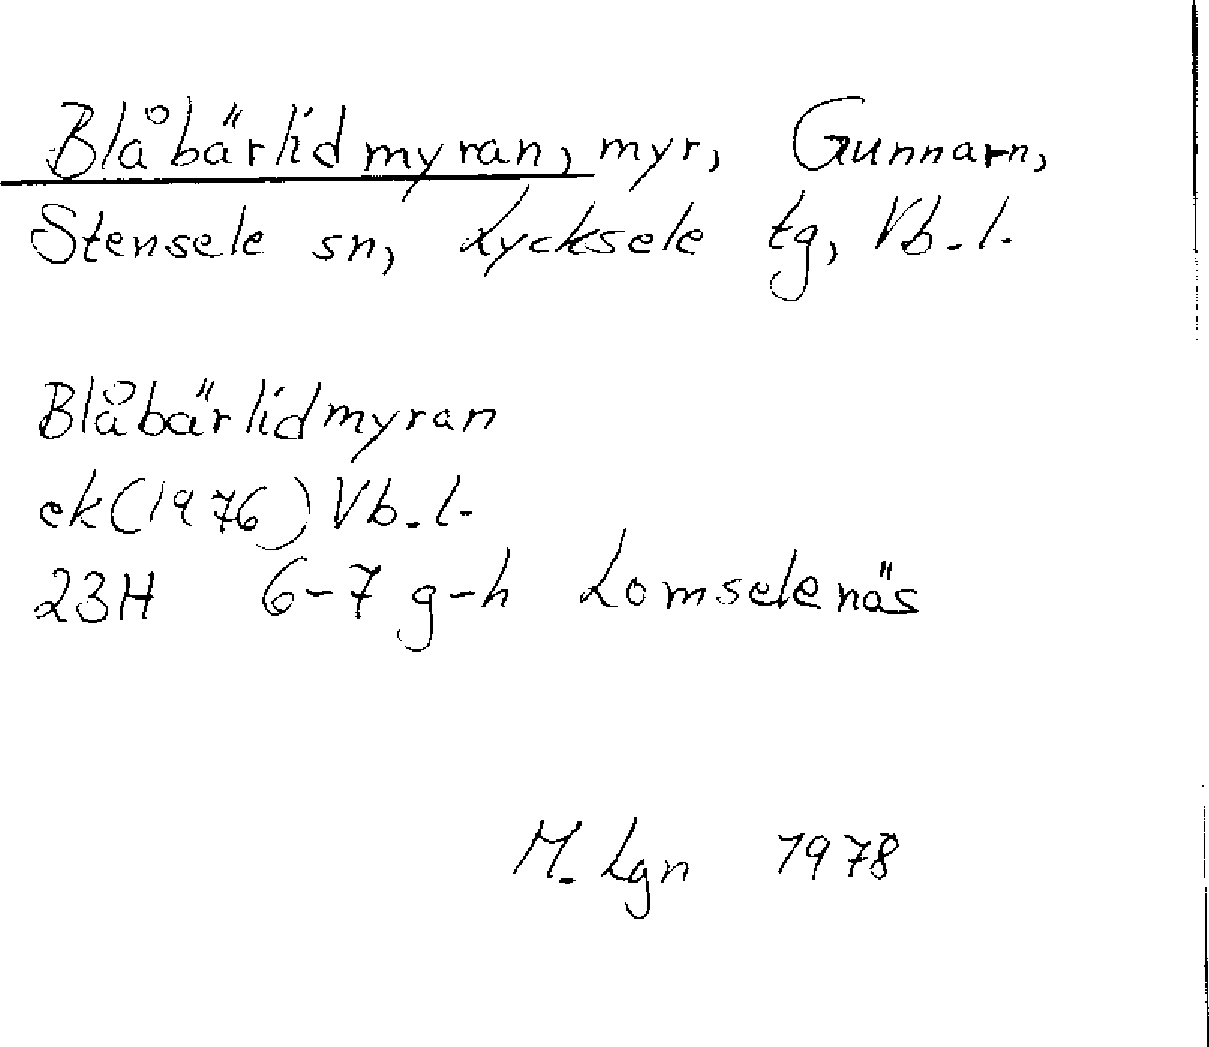 Blåbärlidmyran, myr, Gunnarn,
Stensele sn, Lycksele tg, Vb. l.
Blåbärlidmyran
ek (1976) Vb. l.
23H 6-7 g-h Lomselenäs
M. Lgn 1978